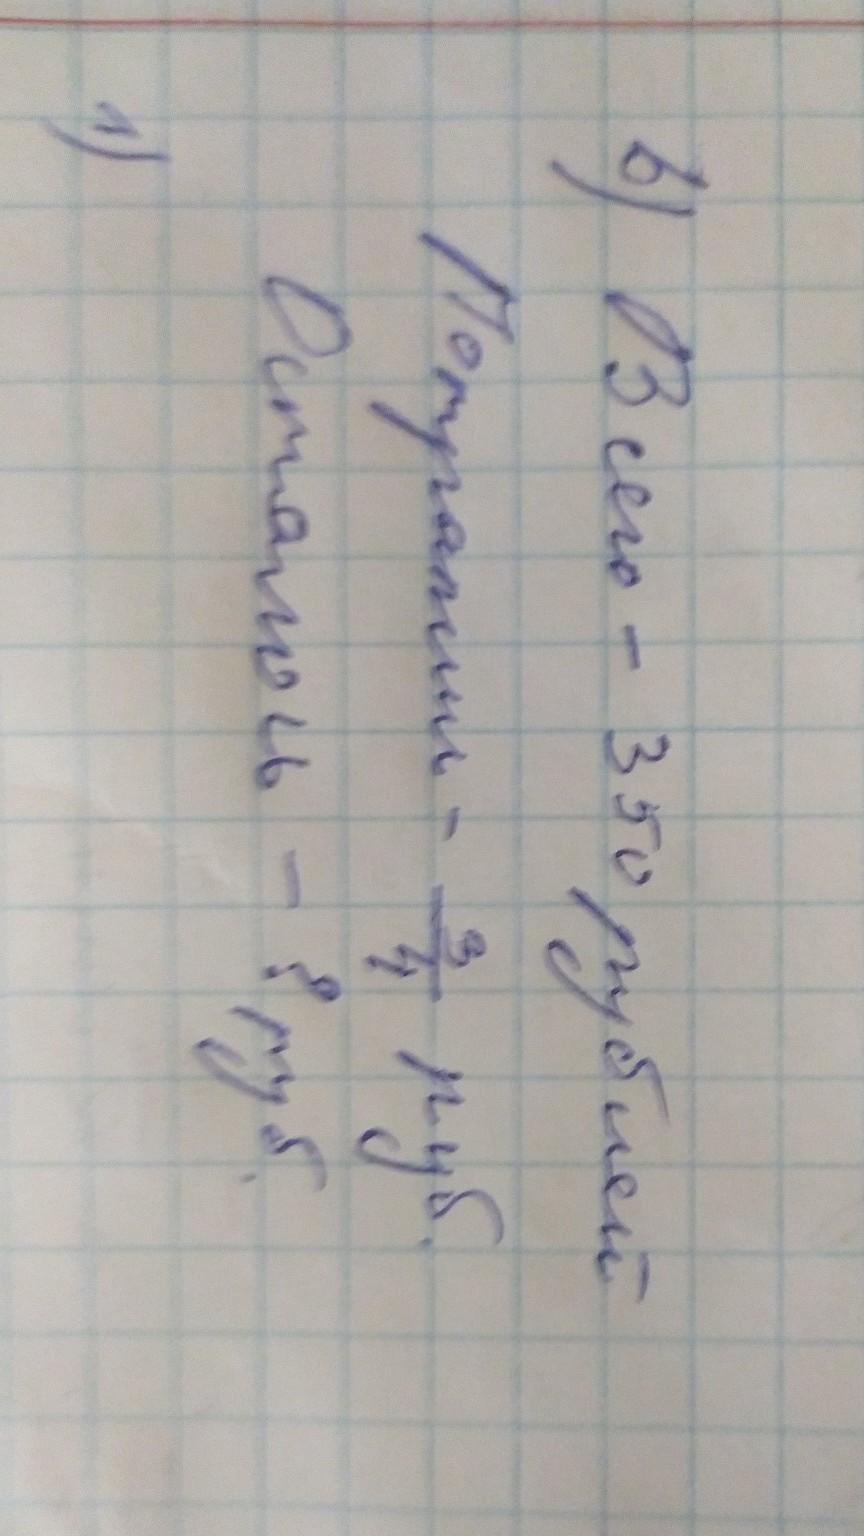 в) Всего - 350 рублей
Потратили - 3/4 руб.
Осталось - ? руб.
1)